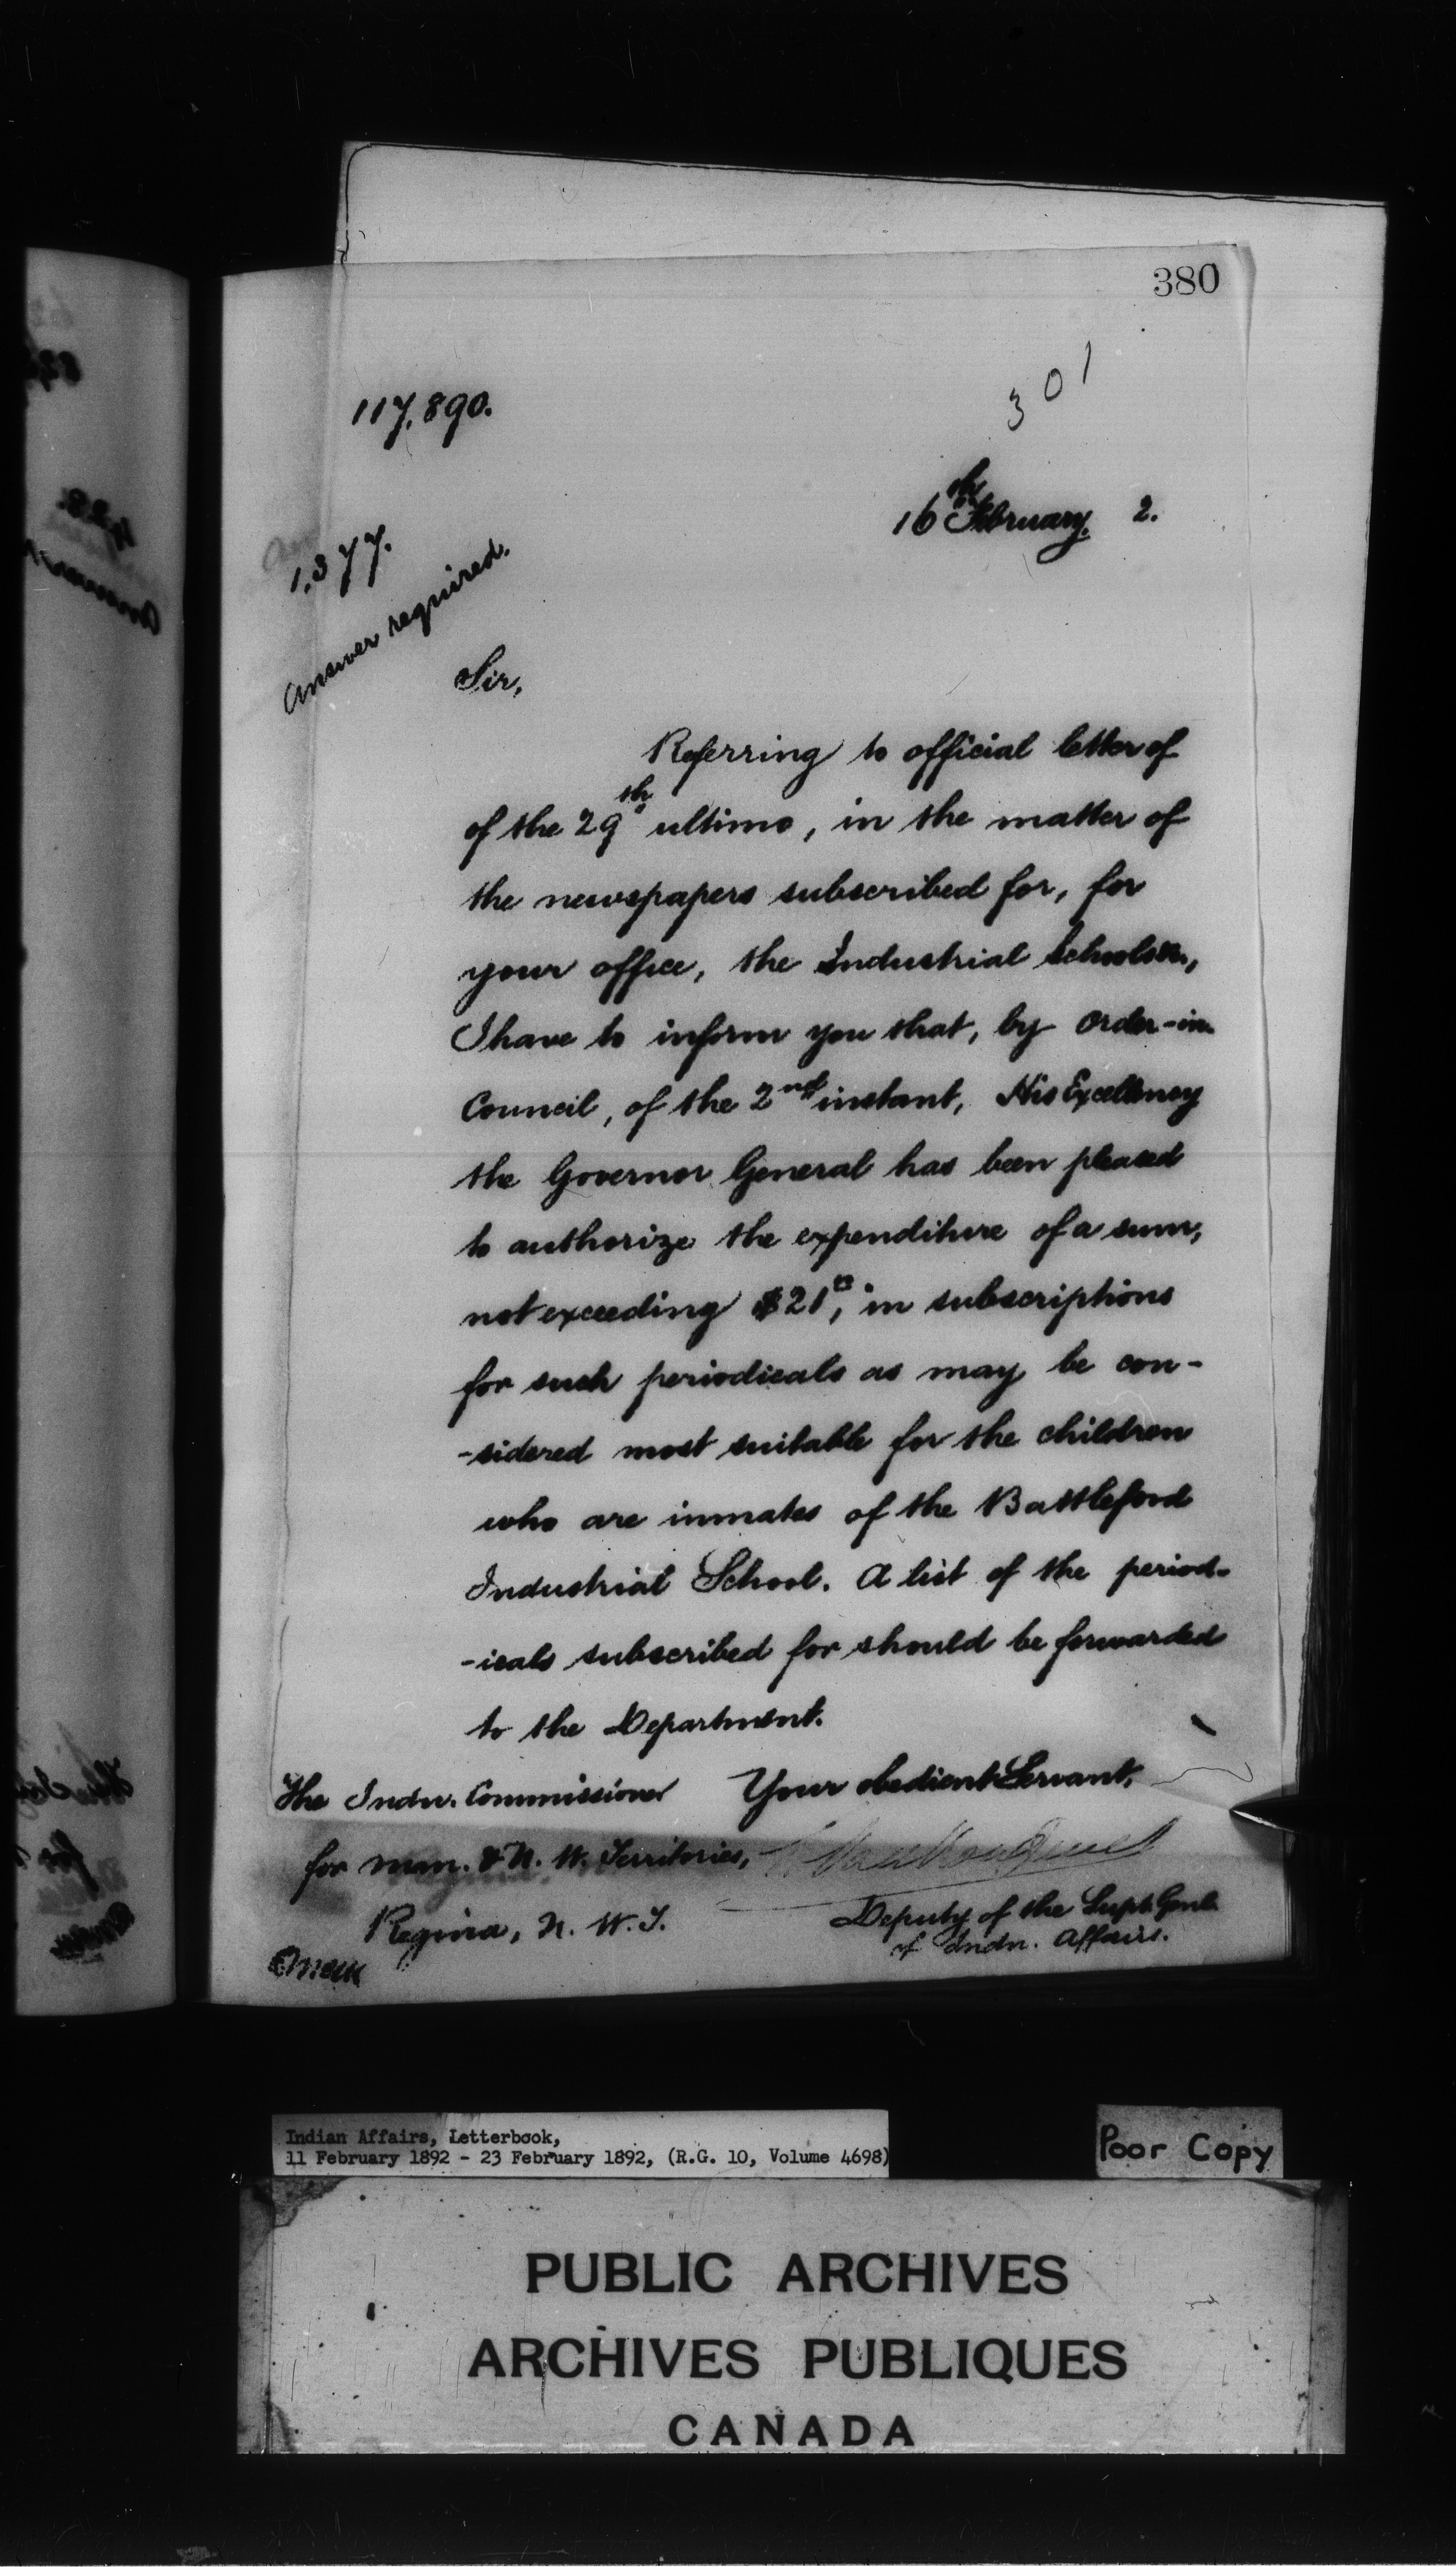 380
301
117,890.
16th February, 2.
1,377.
Answer required.
Sir,
Referring to official letter of
of the 29th ultimo, in the matter of
the newspapers subscribed for, for
your office, the Industrial Schools
I have to inform you that, by Order-in-
Council, of the 2nd instant, His Excellency
the Governor General has been pleased
to authorize the expenditure of a sum,
not exceeding $21, in subscriptions
for such periodicals as may be con-
-sidered most suitable for the children
who are inmates of the Battleford
Industrial School. A list of the period-
-icals subscribed for should be forwarded
to the Department.
The Indn. Commissioner Your obedient Servant,
for Man. & N. W. Territories,
Regina, N. W. T. Deputy of the Supt. Genl.
of Indn. Affairs.
Indian Affairs, Letterbook,
11 February 1892 - 23 February 1892, (R.G. 10, Volume 4698)
Poor Copy
PUBLIC ARCHIVES
ARCHIVES PUBLIQUES
CANADA